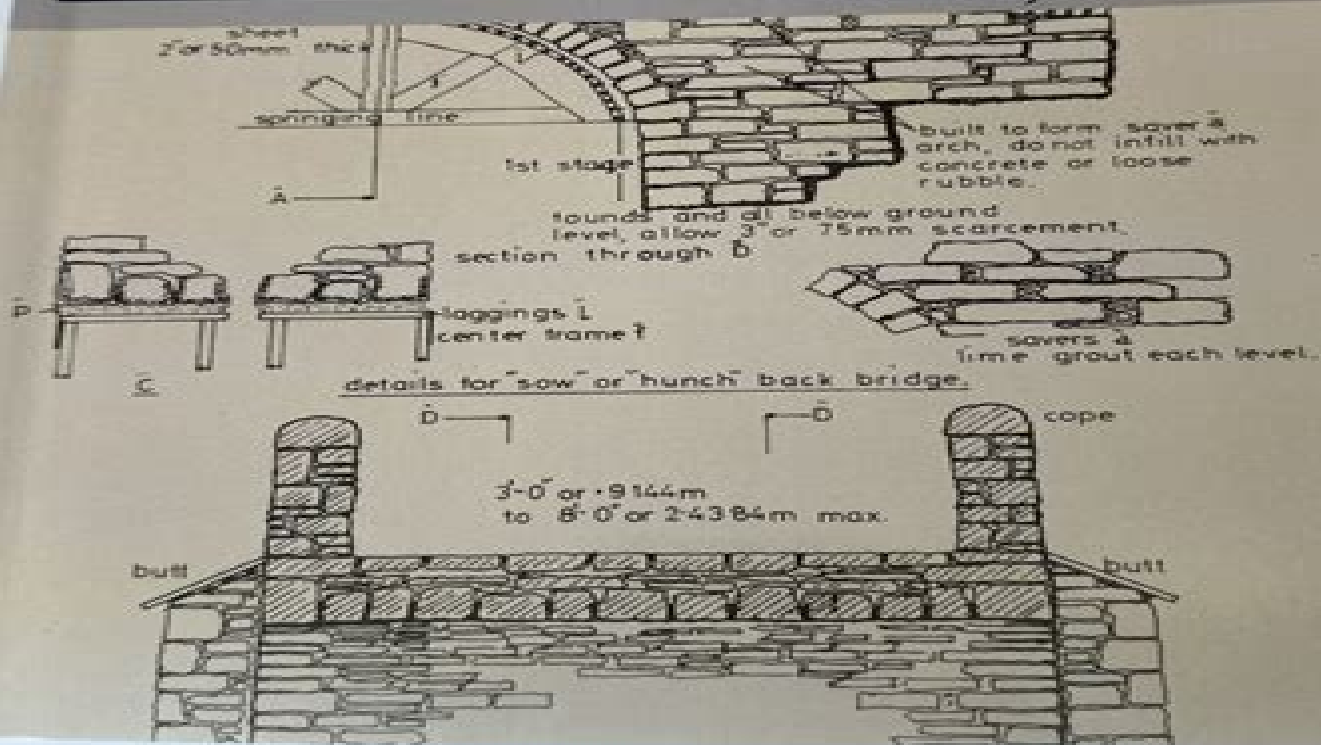 sheet
2" or 50mm thick
springing line
1st stage
A
built to form saver a
arch, do not infill with
concrete or loose
rubble.
founds and all below ground
level, allow 3" or 75mm scarcement.
section through D
P
laggings L
center frame f
C
savers a
lime grout each level.
details for "sow" or "hunch" back bridge.
D
D
cope
3'-0" or ·9144m
to 8'-0" or 2·4384m max.
butt
butt